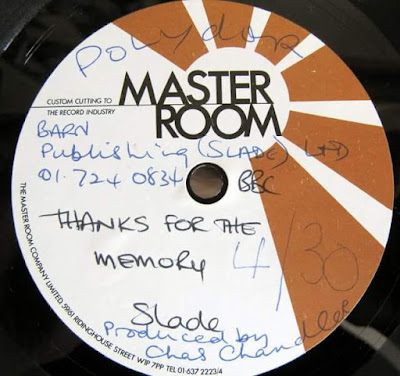 POLYDOR
MASTER
ROOM
CUSTOM CUTTING TO
THE RECORD INDUSTRY
BARN
Publishing (SLADE) LTD
01·724 0834 BBC
THANKS FOR THE
MEMORY 4/30
Slade
Produced by
Chas Chandler
THE MASTER ROOM COMPANY LIMITED 59/61 RIDINGHOUSE STREET W1P 7PP TEL 01-637 2223/4